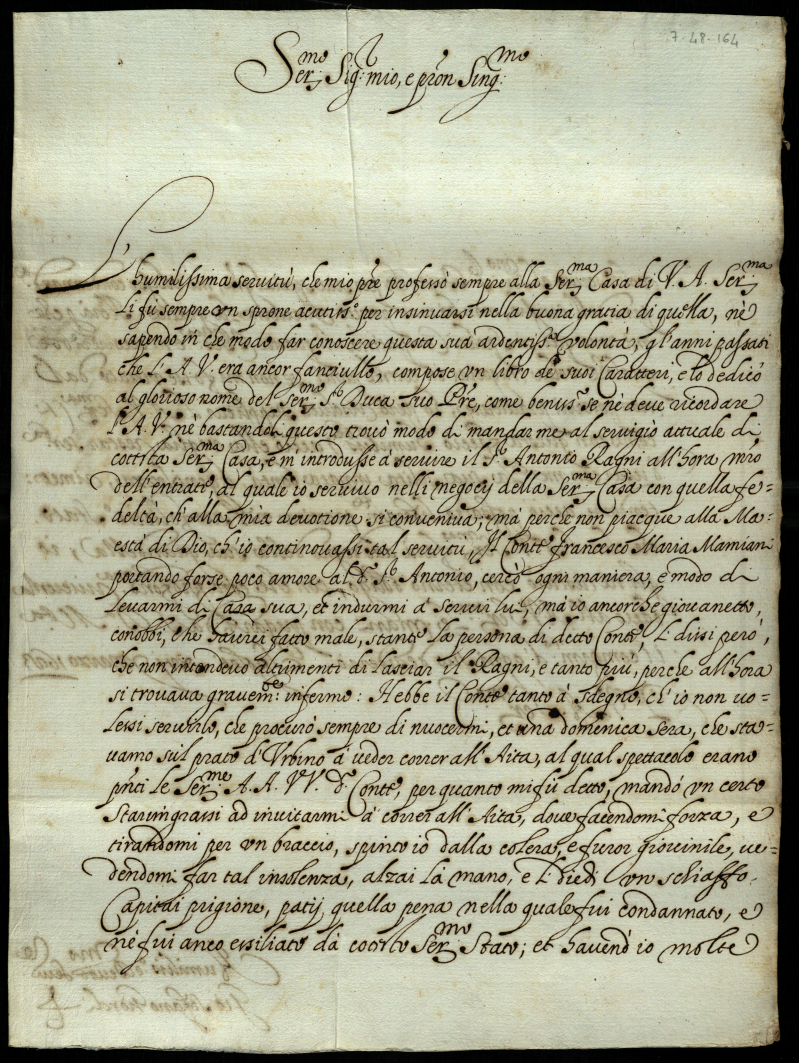 7-48-164
Ser.mo Sig.r mio, e pron Sing.mo
L'humilissima servitù, che mio pre professò sempre alla Ser.ma Casa di V. A. Ser.ma
li fù sempre un sprone acutiss.o per insinuarsi nella buona gratia di quella, nè
sapendo in che modo far conoscere questa sua ardentiss.a volontà, gl'anni passati
che l'A V. era ancor fanciullo, compose un libro de suoi Caratteri, e lo dedicò
al glorioso nome del Ser.mo S.r Duca suo Pre, come beniss.o se nè deve ricordare
l'A V. nè bastandoli questo trovò modo di mandarme al servigio attuale di
cotesta Ser.ma Casa, e m'introdusse à servire il S.r Antonio Ragni all'hora m.ro
dell'entrate, al quale io servivo nelli negocij della Ser.ma Casa con quella fe=
deltà, ch'alla mia devotione si conveniva; mà perche non piacque alla Ma=
està di Dio, ch'io continouassi tal servitù, Il Conte Francesco Maria Mamiani
portando forse poco amore al d.o S.r Antonio, cercò ogni maniera, e modo di
levarmi di Casa sua, et indurmi à servir lui, mà io ancorche giovanetto,
conobbi, che haurei fatto male, stante la persona di detto Conte li dissi però,
che non intendevo altrimenti di lasciar il Ragni, e tanto più, perche all'hora
si trovava gravem.te infermo: Hebbe il Conte tanto à sdegno, ch'io non vo=
lessi servirlo, che procurò sempre di nuocermi, et una domenica sera, che sta=
vamo sul prato d'Urbino à veder correr all'Aita, al qual spettacolo erano
pnti le Ser.me A. A. VV. d.o Conte, per quanto mi fù detto, mandò un certo
Staringrassi ad invitarmi à correr all'Aita, dove facendomi forza, e
tirandomi per un braccio, spinto io dalla colera, e furor giovinile, ve=
dendomi far tal insolenza, alzai la mano, e li diedi un schiaffo.
Capitai prigione, patij quella pena nella quale fui condannato, e
nè fui anco essiliato dà cotesto Ser.mo Stato; et havend'io molte